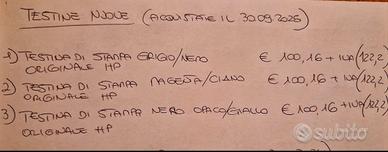 TESTINE NUOVE (ACQUISTATE IL 30.09.2025)
1) TESTINA DI STAMPA GRIGIO/NERO € 100,16 + IVA (122,2)
ORIGINALE HP
2) TESTINA DI STAMPA MAGENTA/CIANO € 100,16 + IVA (122,2)
ORIGINALE HP
3) TESTINA DI STAMPA NERO OPACO/GIALLO € 100,16 + IVA (122,2)
ORIGINALE HP
subito